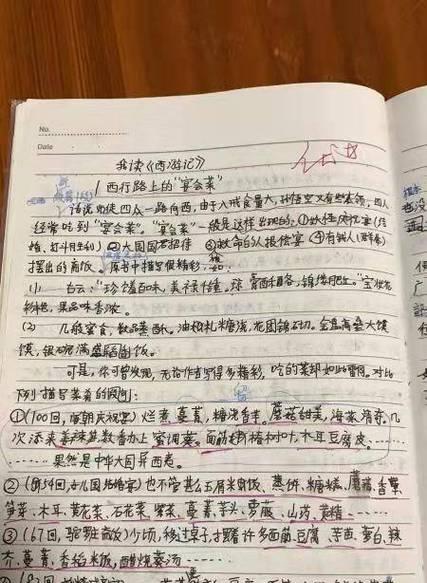 No.
Date
我读《西游记》
1 西行路上的“宴会菜”
话说师徒四人一路向西,由于八戒食量大,孙悟空又有些本领,四人
经常吃到“宴会菜”。“宴会菜”一般是这样出现的:①妖怪庆贺宴(结
婚,打斗胜利),②大国国君招待 ③救命的人报偿宴 ④有钱人(群举)
摆出的斋饭。原书中描写很精彩,如:
(1) 右云:“珍馐百味,美禄千钟。琼膏酥酪,锦缕肥红。”宝妆花
彩艳,果品味香浓。
(2) 几般蜜食,数品蒸酥。油札糖浇,花团锦砌。金盘高垒大馒
馍,银碗满盛稻饭。
可是,你可曾发现,无论作者写得多精彩,吃的菜却如此雷同。对比
下列描写菜肴的段例:
①(100回,回朝庆祝宴)烂煮蔓菁,糖浇香芋。蘑菇甜美,海菜清奇。几
次添来姜辣笋,数番办上蜜调葵。面筋椿树叶,木耳豆腐皮……
……果然是中华大国异西夷。
②(第54回,女儿国结婚宴)也不管甚么玉屑米饭、蒸饼、糖糕、蘑菇、香蕈、
笋芽、木耳、黄花菜、石花菜、紫菜、蔓菁、芋头、萝菔、山药、黄精……
③(67回,驼罗庄救)少顷,移过桌子,摆着许多面筋、豆腐、芋苗、萝白、辣
芥、蔓菁、香稻米饭,醋烧葵汤……